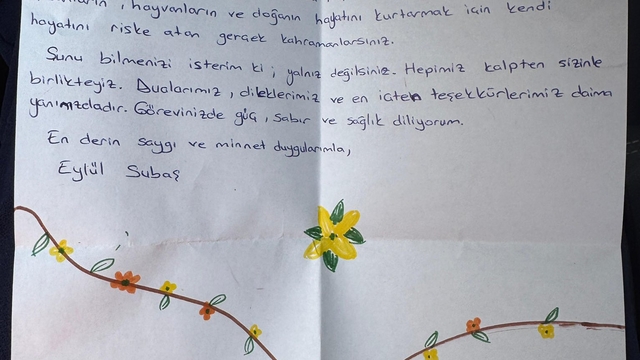 , hayvanların ve doğanın hayatını kurtarmak için kendi
hayatını riske atan gerçek kahramanlarsınız.
Şunu bilmenizi isterim ki ; yalnız değilsiniz. Hepimiz kalpten sizinle
birlikteyiz. Dualarımız, dileklerimiz ve en içten teşekkürlerimiz daima
yanınızdadır. Görevinizde güç, sabır ve sağlık diliyorum.
En derin saygı ve minnet duygularımla,
Eylül Subaş